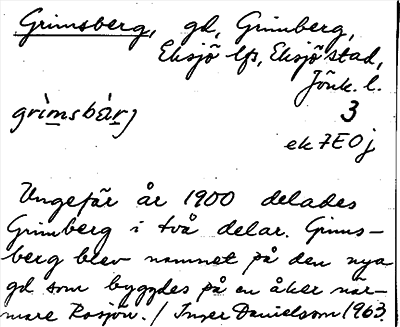 Grimsberg, gd, Grimberg,
Eksjö lfs, Eksjö stad,
Jönk. l.
grìmsbàrj 3
ek 7E0j
Ungefär år 1900 delades
Grimberg i två delar. Grims-
berg blev namnet på den nya
gd som byggdes på en åker när-
mare Rosjön. / Inger Danielsson 1963.